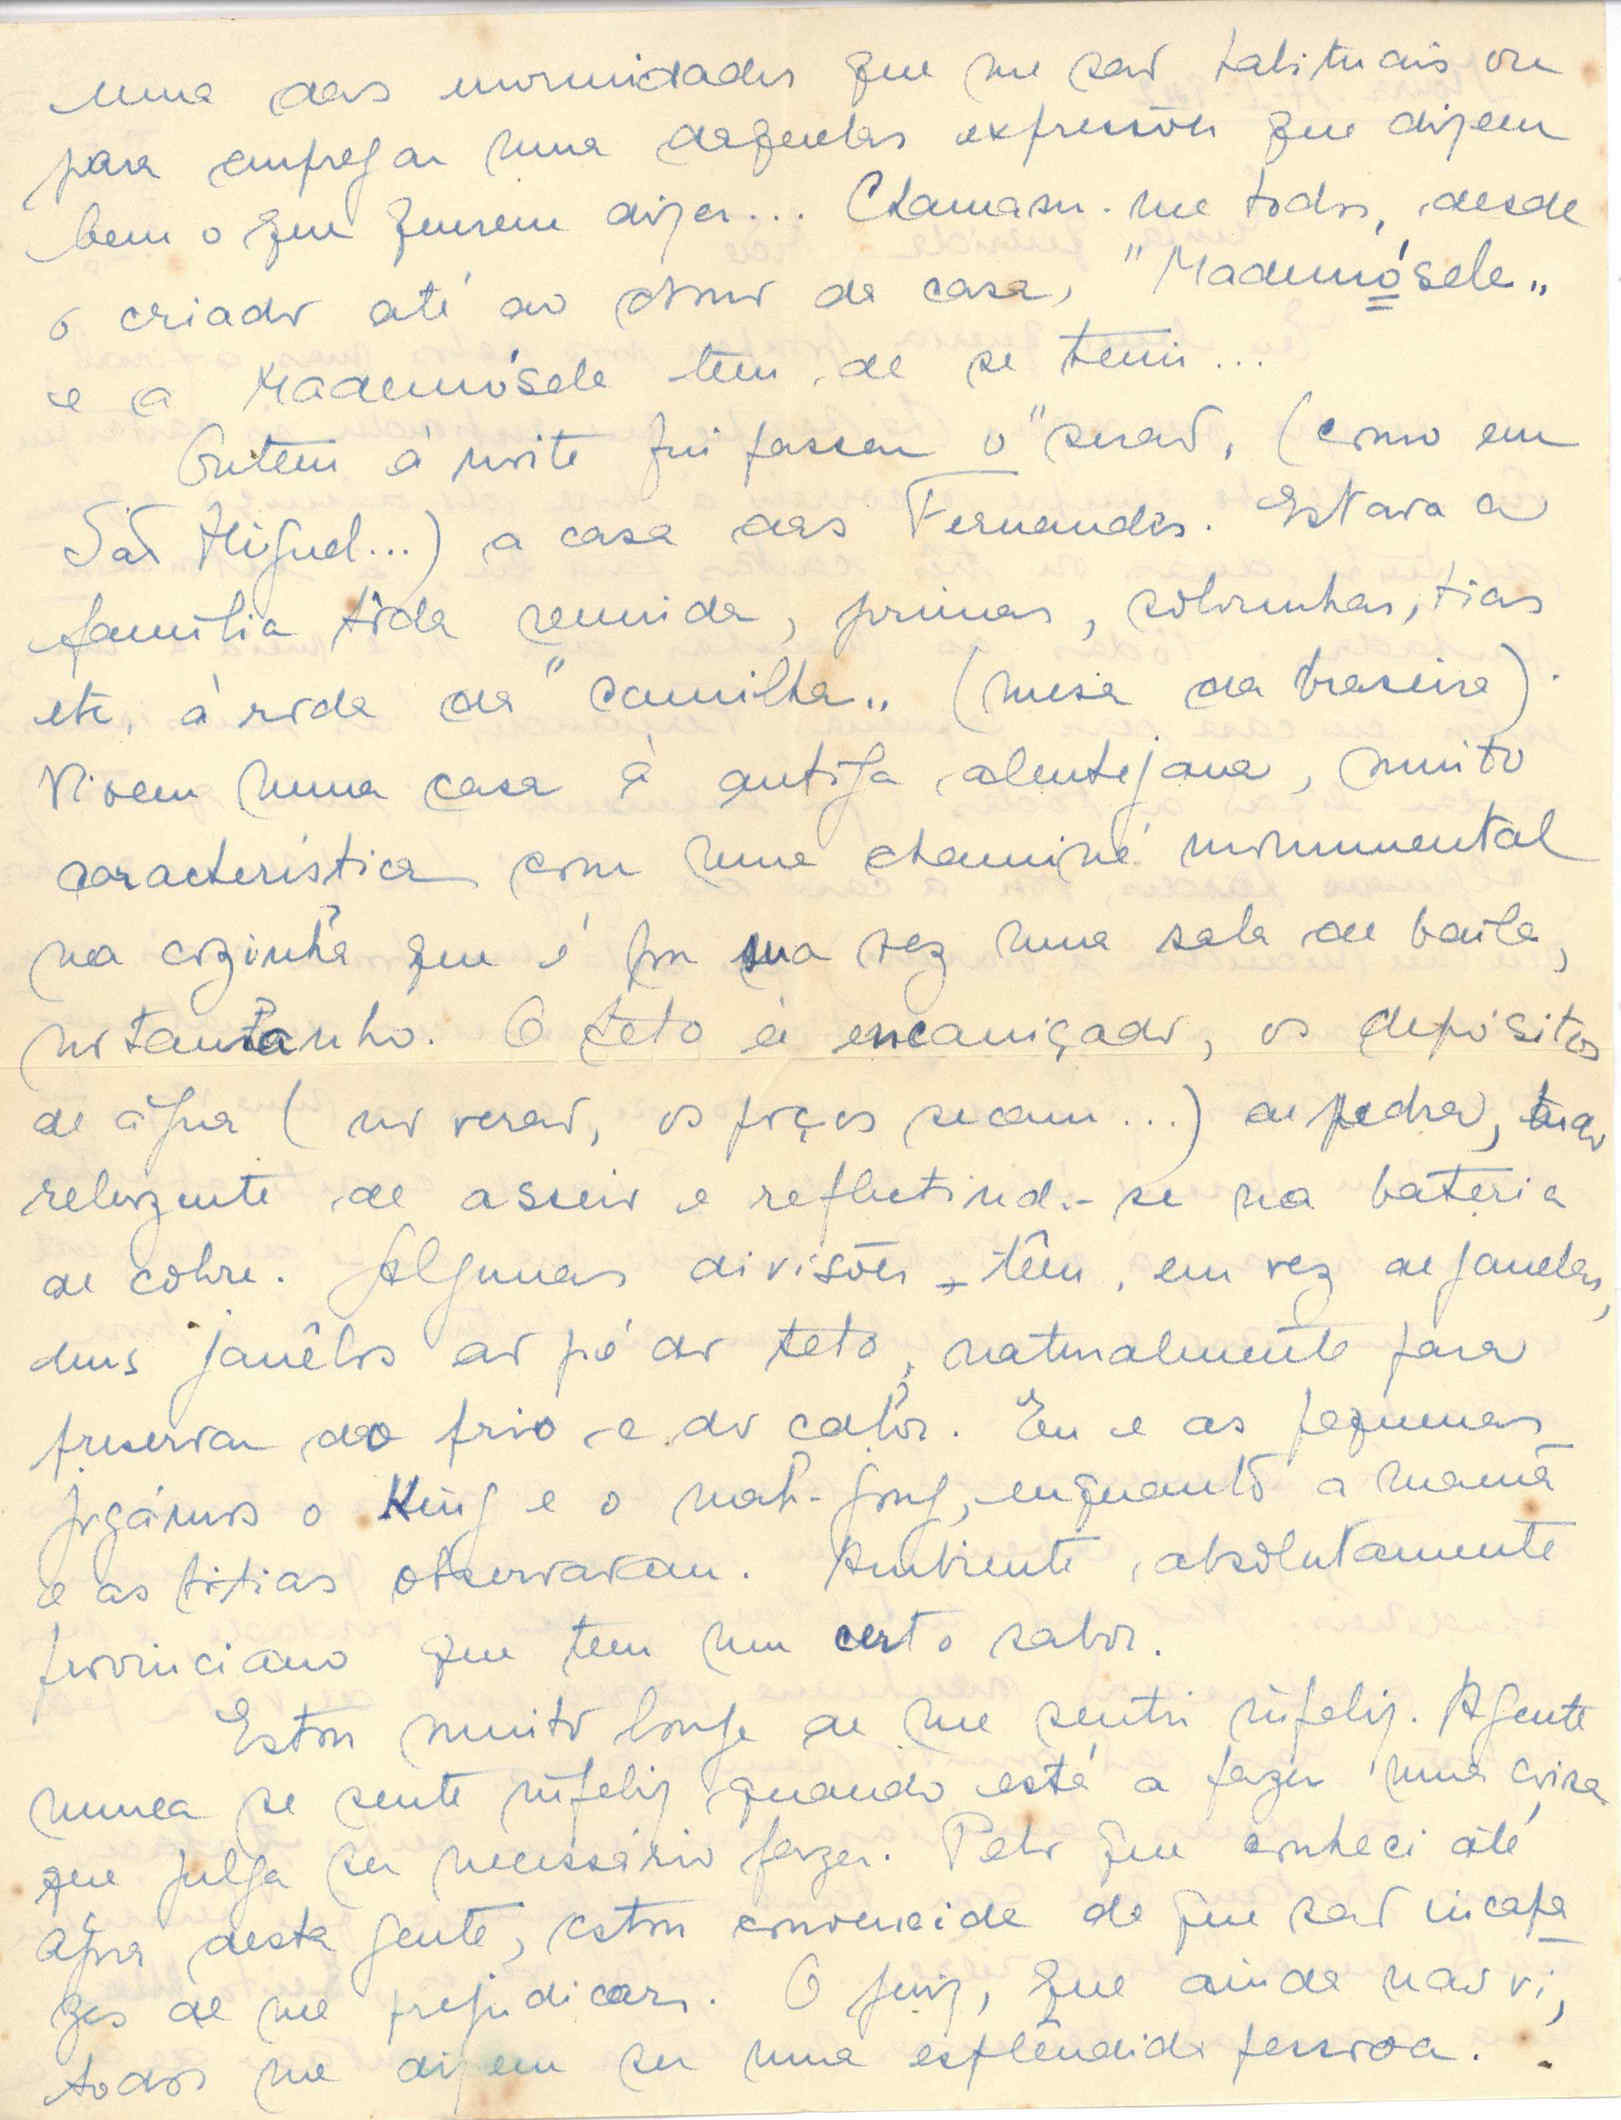 uma das enormidades que me são habituais ou
para empregar uma daquelas expressões que dizem
bem o que querem dizer... Chamam-me todos, desde
o criado até ao dono da casa, "Mademósele"
e a Mademósele tem de se
Ontem à noite fui passar o "serão, (como em
São Miguel...) a casa das Fernandes. Estava a
família tôda reunida, primas, sobrinhas, tias
etc, à roda da "camilha" (mesa da braseira).
Vivem numa casa à antiga alentejana, muito
característica com uma chaminé monumental
na cozinha que é por sua vez uma sala de baile,
no tamanho. O teto é encaniçado, os depósitos
de água (no verão, os poços secam...) de pedra, tudo
reluzente de asseio e reflectindo-se na bateria
de cobre. Algumas divisões têm, em vez de janelas,
uns janêlos ao pé do teto, naturalmente para
preservar do frio e do calor. Eu e as pequenas
jogámos o King e o mah-jong, enquanto a mamã
e as titias observavam. Ambiente absolutamente
provinciano que tem um certo sabor.
Estou muito longe de me sentir infeliz. A gente
nunca se sente infeliz quando está a fazer uma coisa
que julga ser necessário fazer. Pelo que conheci até
agora desta gente, estou convencida de que são incapa
zes de me prejudicar. O juiz, que ainda não vi,
todos me dizem ser uma esplêndida pessoa.